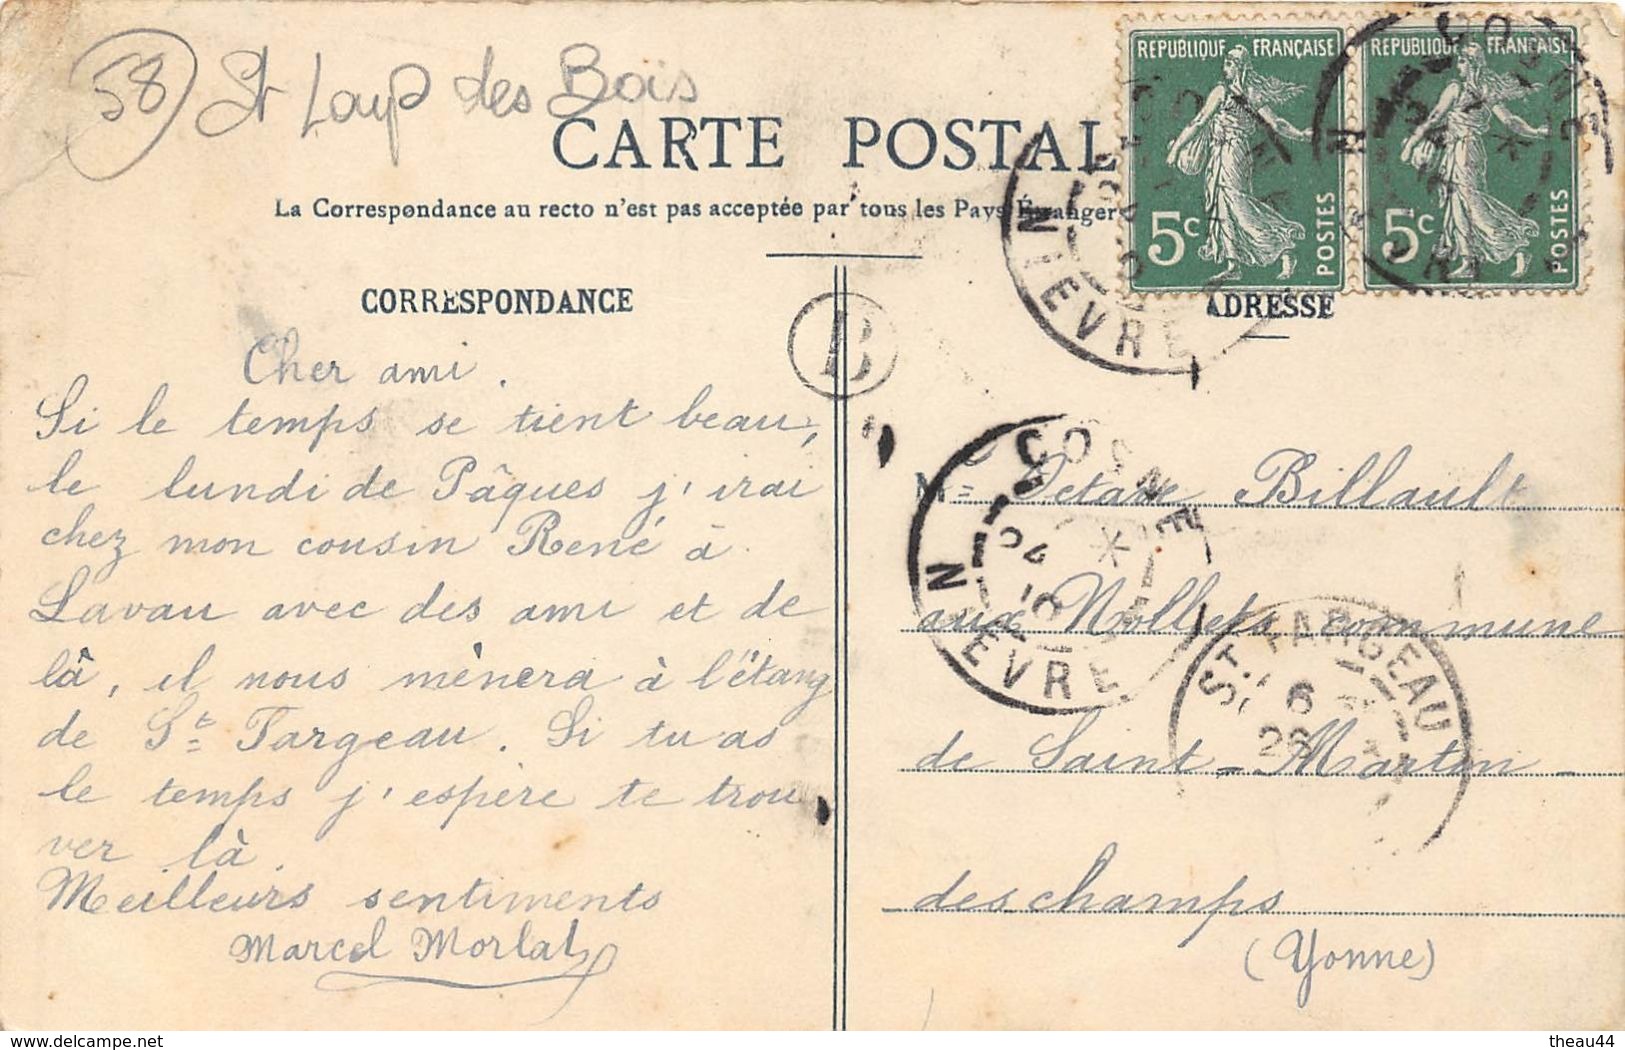 58 St Loup des Bois
CARTE POSTAL
La Correspondance au recto n'est pas acceptée par tous les Pays Étranger
REPUBLIQUE FRANÇAISE
5c POSTES
REPUBLIQUE FRANÇAISE
5c POSTES
COSNE
NIEVRE
CORRESPONDANCE
ADRESSE
B
Cher ami.
Si le temps se tient beau,
le lundi de Pâques j'irai
chez mon cousin René à
Lavau avec des ami et de
là, il nous mènera à l'étang
de St Fargeau. Si tu as
le temps j'espère te trou
ver là.
Meilleurs sentiments
Marcel Morlat
COSNE
NIEVRE
Mr Octave Billault
aux Nollets, commune
de Saint-Martin-
des champs
(Yonne)
ST FARGEAU
6
26
www.delcampe.net
theau44